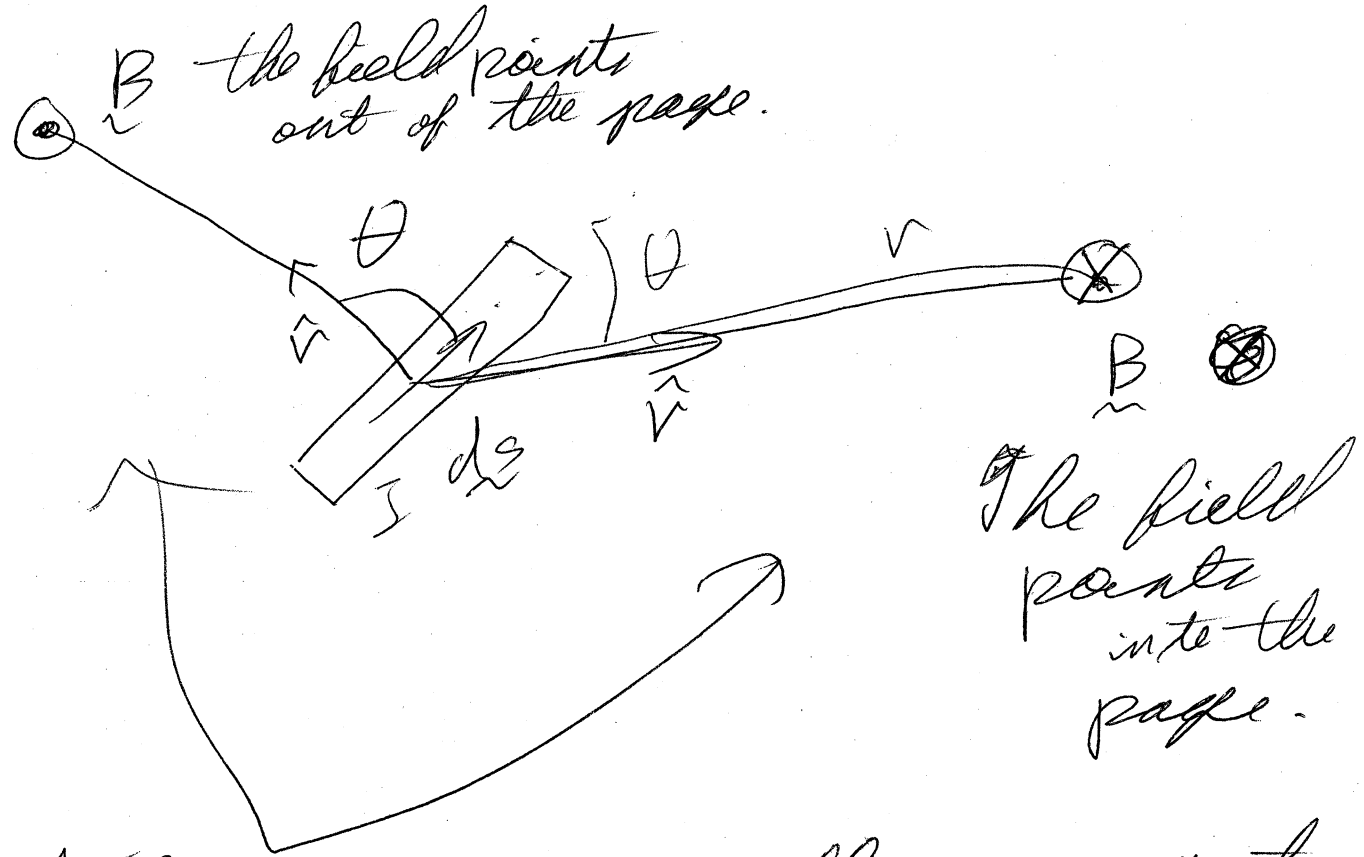 B the field points
out of the page.
θ
θ
r
r̂
r̂
B
ds
I
The field
points
into the
page.